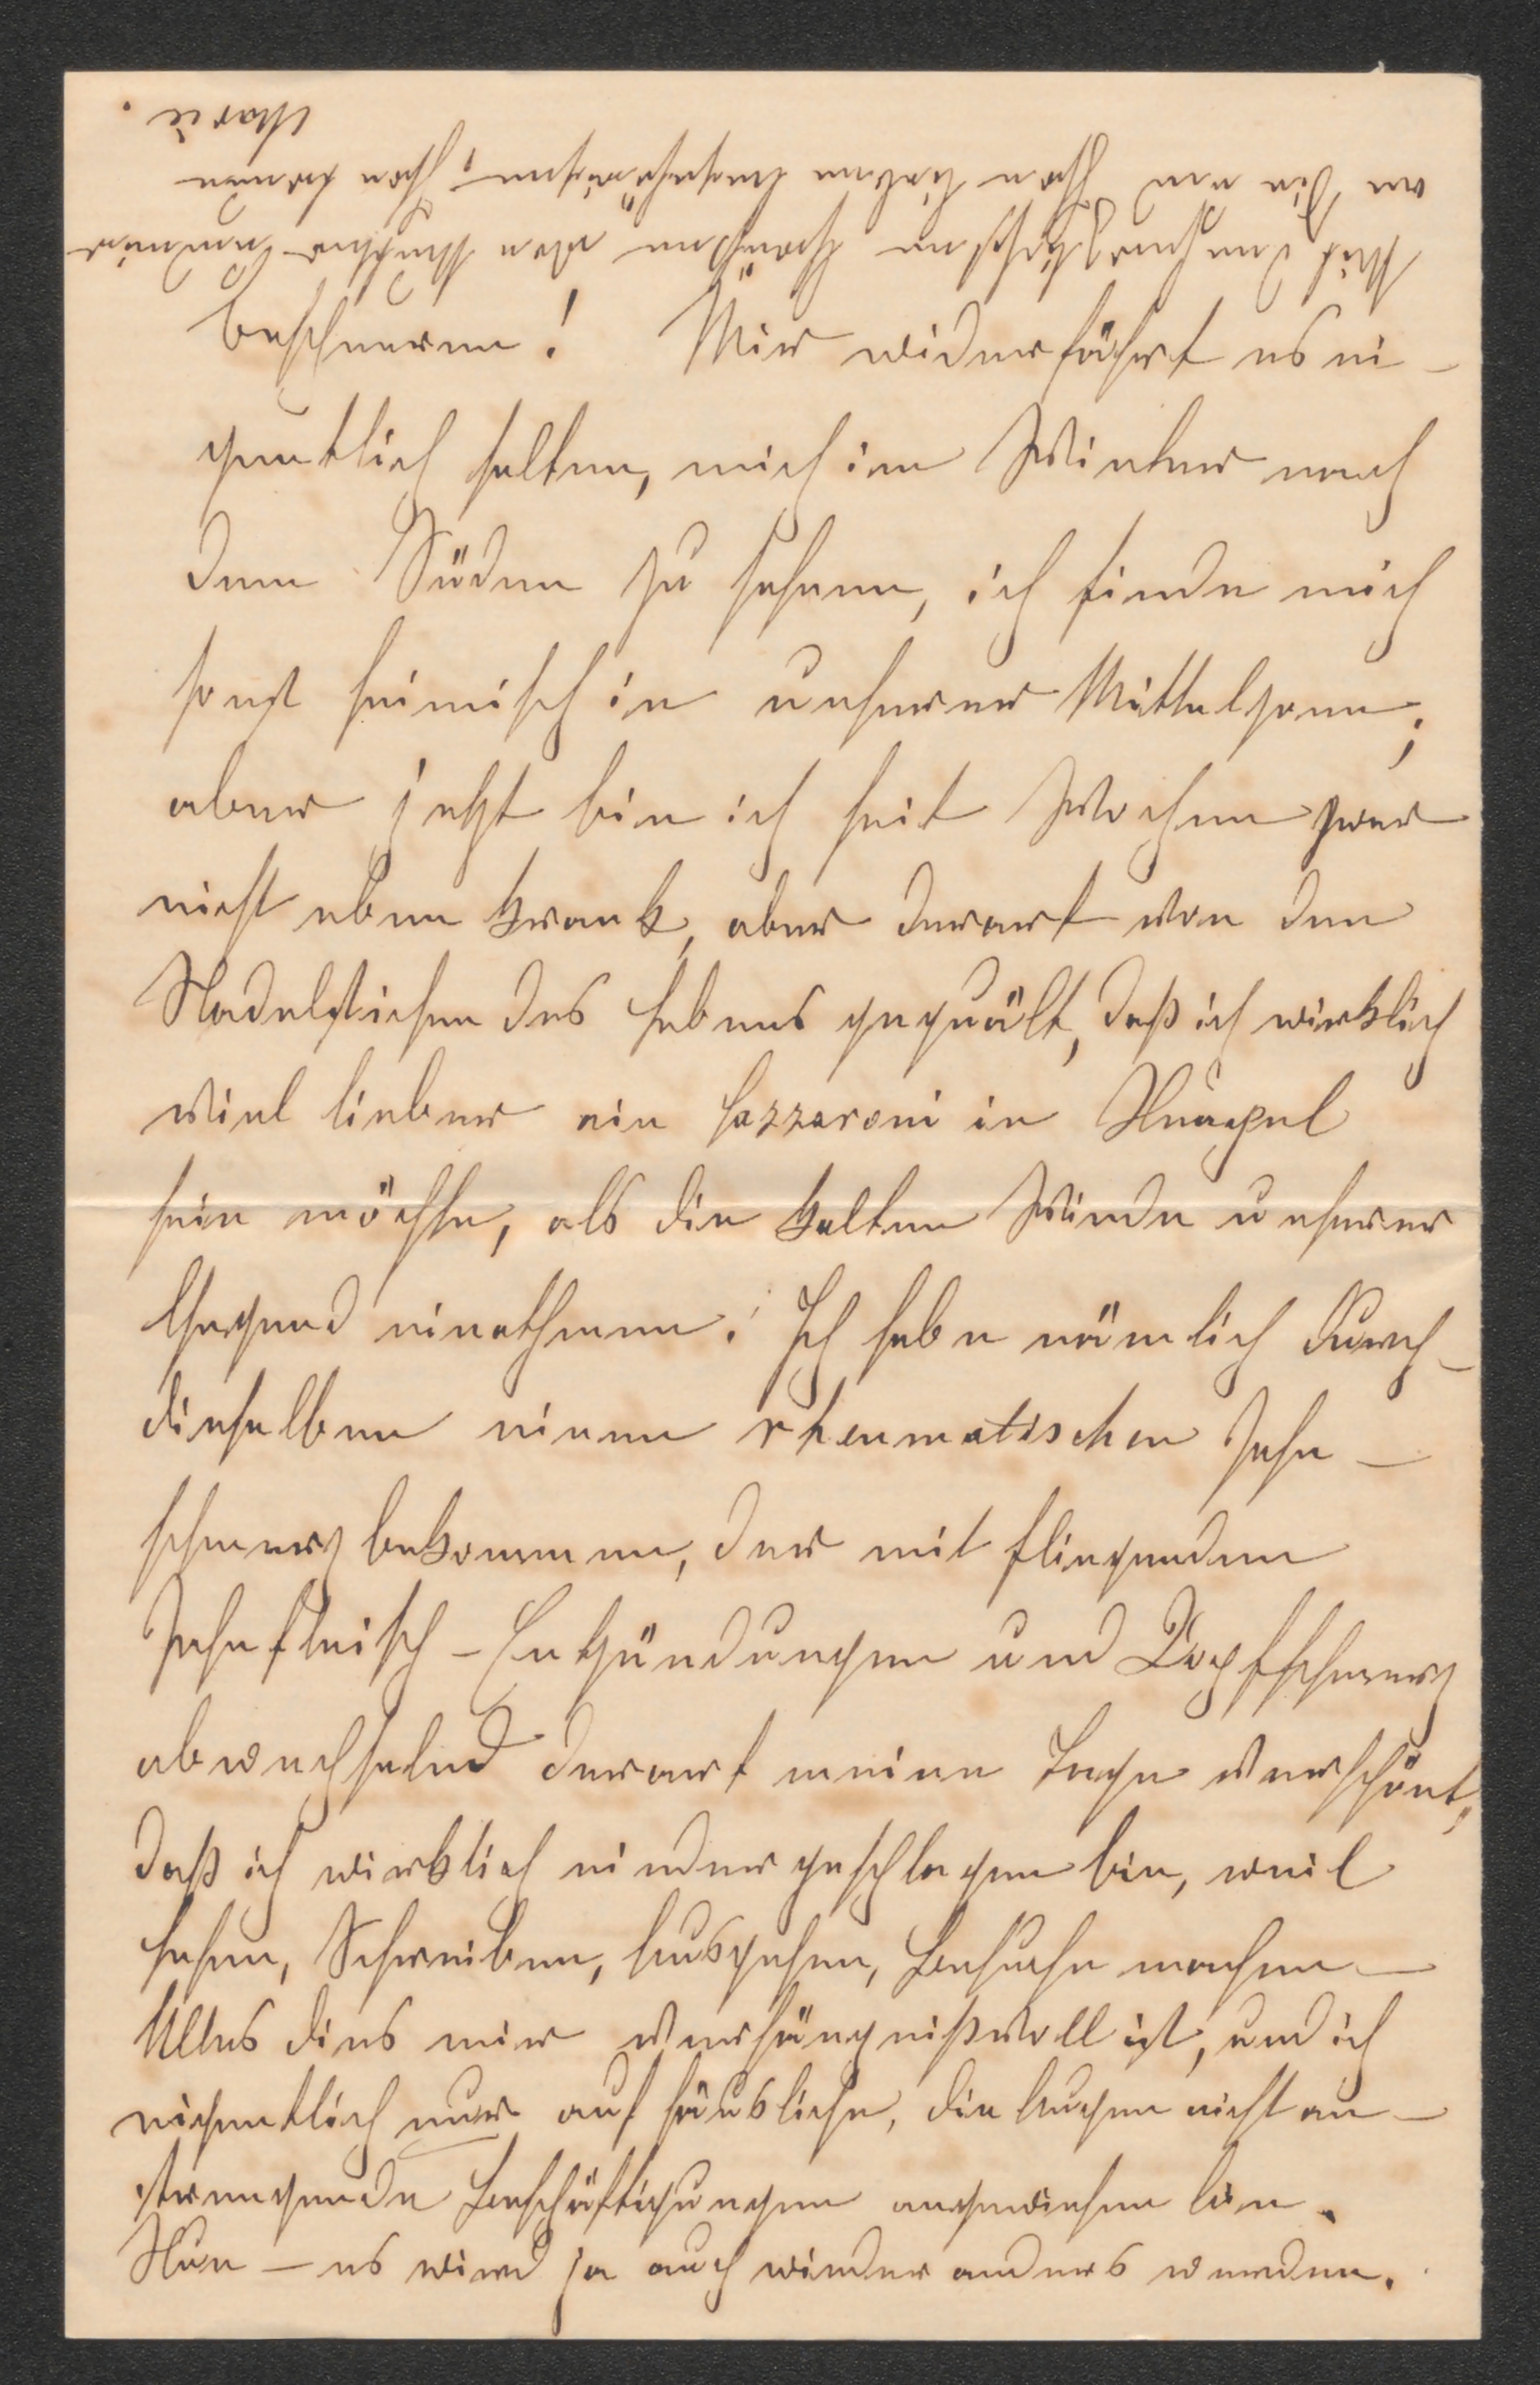 bescheeren! Mir widerfährt es ei-
gentlich selten, mich im Winter nach
dem Süden zu sehnen, ich finde mich
sonst heimisch in unserer Mittelzone;
aber jetzt bin ich seit Wochen zwar
nicht eben krank, aber derart von den
Nadelstichen des Lebens gequält, daß ich wirklich
viel lieber ein Lazzaroni in Neapel
sein möchte, als die kalten Winde unserer
Gegend einathmen. Ich habe nämlich durch
dieselben einen rheumatischen Zahn-
schmerz bekommen, der mit fliegenden
Zahnfleisch-Entzündungen und Kopfschmerz
abwechselnd derart meine Tage verschönt,
daß ich wirklich niedergeschlagen bin, weil
Lesen, Schreiben, Ausgehen, Besuche machen —
Alles dies mir verhängnißvoll ist, und ich
eigentlich nur auf häusliche, die Augen nicht an-
strengende Beschäftigungen angewiesen bin.
Nun — es wird ja auch wieder anders werden.
Mit den herzlichsten Grüßen von Mutter und mir
an Dich und Ihre lieben Angehörigen, Ihre
Marie.